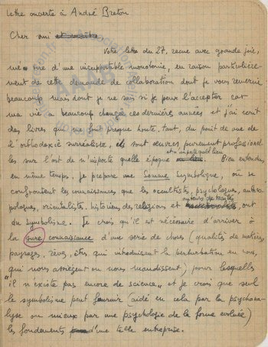 Lettre ouverte à André Breton
Cher ami
Votre lettre du 27, reçue avec grande joie,
me prive d'une insupportable monotonie, en raison particulière-
ment de cette demande de collaboration dont je vous remercie
beaucoup mais dont je ne sais si je peux l'accepter car
ma vie a beaucoup changé ces dernières années et j'ai écrit
des livres qui me font presque honte, tant, du point de vue
de l'orthodoxie surréaliste, ils sont œuvres purement professionnel
les sur l'art de n'importe quelle époque. Bien entendu
en même temps, je prépare une Somme symbolique, où se
confondent les connaissances que les occultistes, psychologues, anthro
pologues, orientalistes, historiens des religions et ont
du symbolisme. Je crois qu'il est nécessaire d'arriver à
la pure connaissance d'une série de choses (qualités de matière,
paysages, rêves, êtres qui introduisent la perturbation en nous,
qui nous assiègent ou nous maudissent) pour lesquelles
"il n'existe pas encore de science" et je crois que seul
le symbolisme peut fournir (aidé en cela par la psychana-
lyse ou mieux par une psychologie de la forme évoluée)
les fondements d'une telle entreprise.